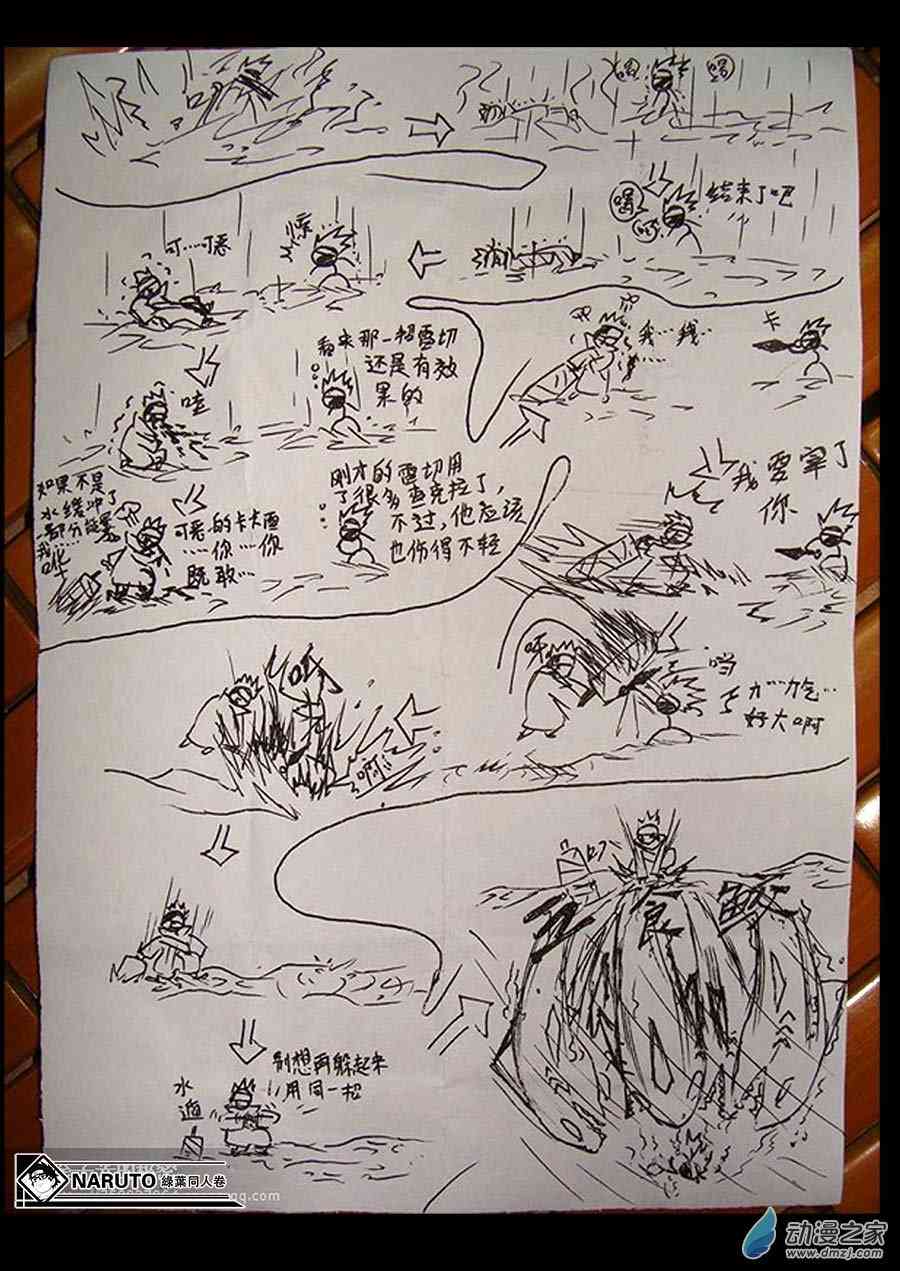 喝
喝
喝
结束了吧
惊
可…可恶
哇
看来那一招雷切
还是有效
果的
我…我…
……
卡
我要宰了
你
如果不是
水缓冲了
一部分能量
我……
可恶的卡卡西
……你…你
既敢…
刚才的雷切用
了很多查克拉了，
不过，他应该
也伤得不轻
呀
当
力…力气…
好大啊
啊!!
五食鲛
水
遁
别想再躲起来
!!用同一招
NARUTO 綠葉同人卷
ng.com
动漫之家
www.dmzj.com